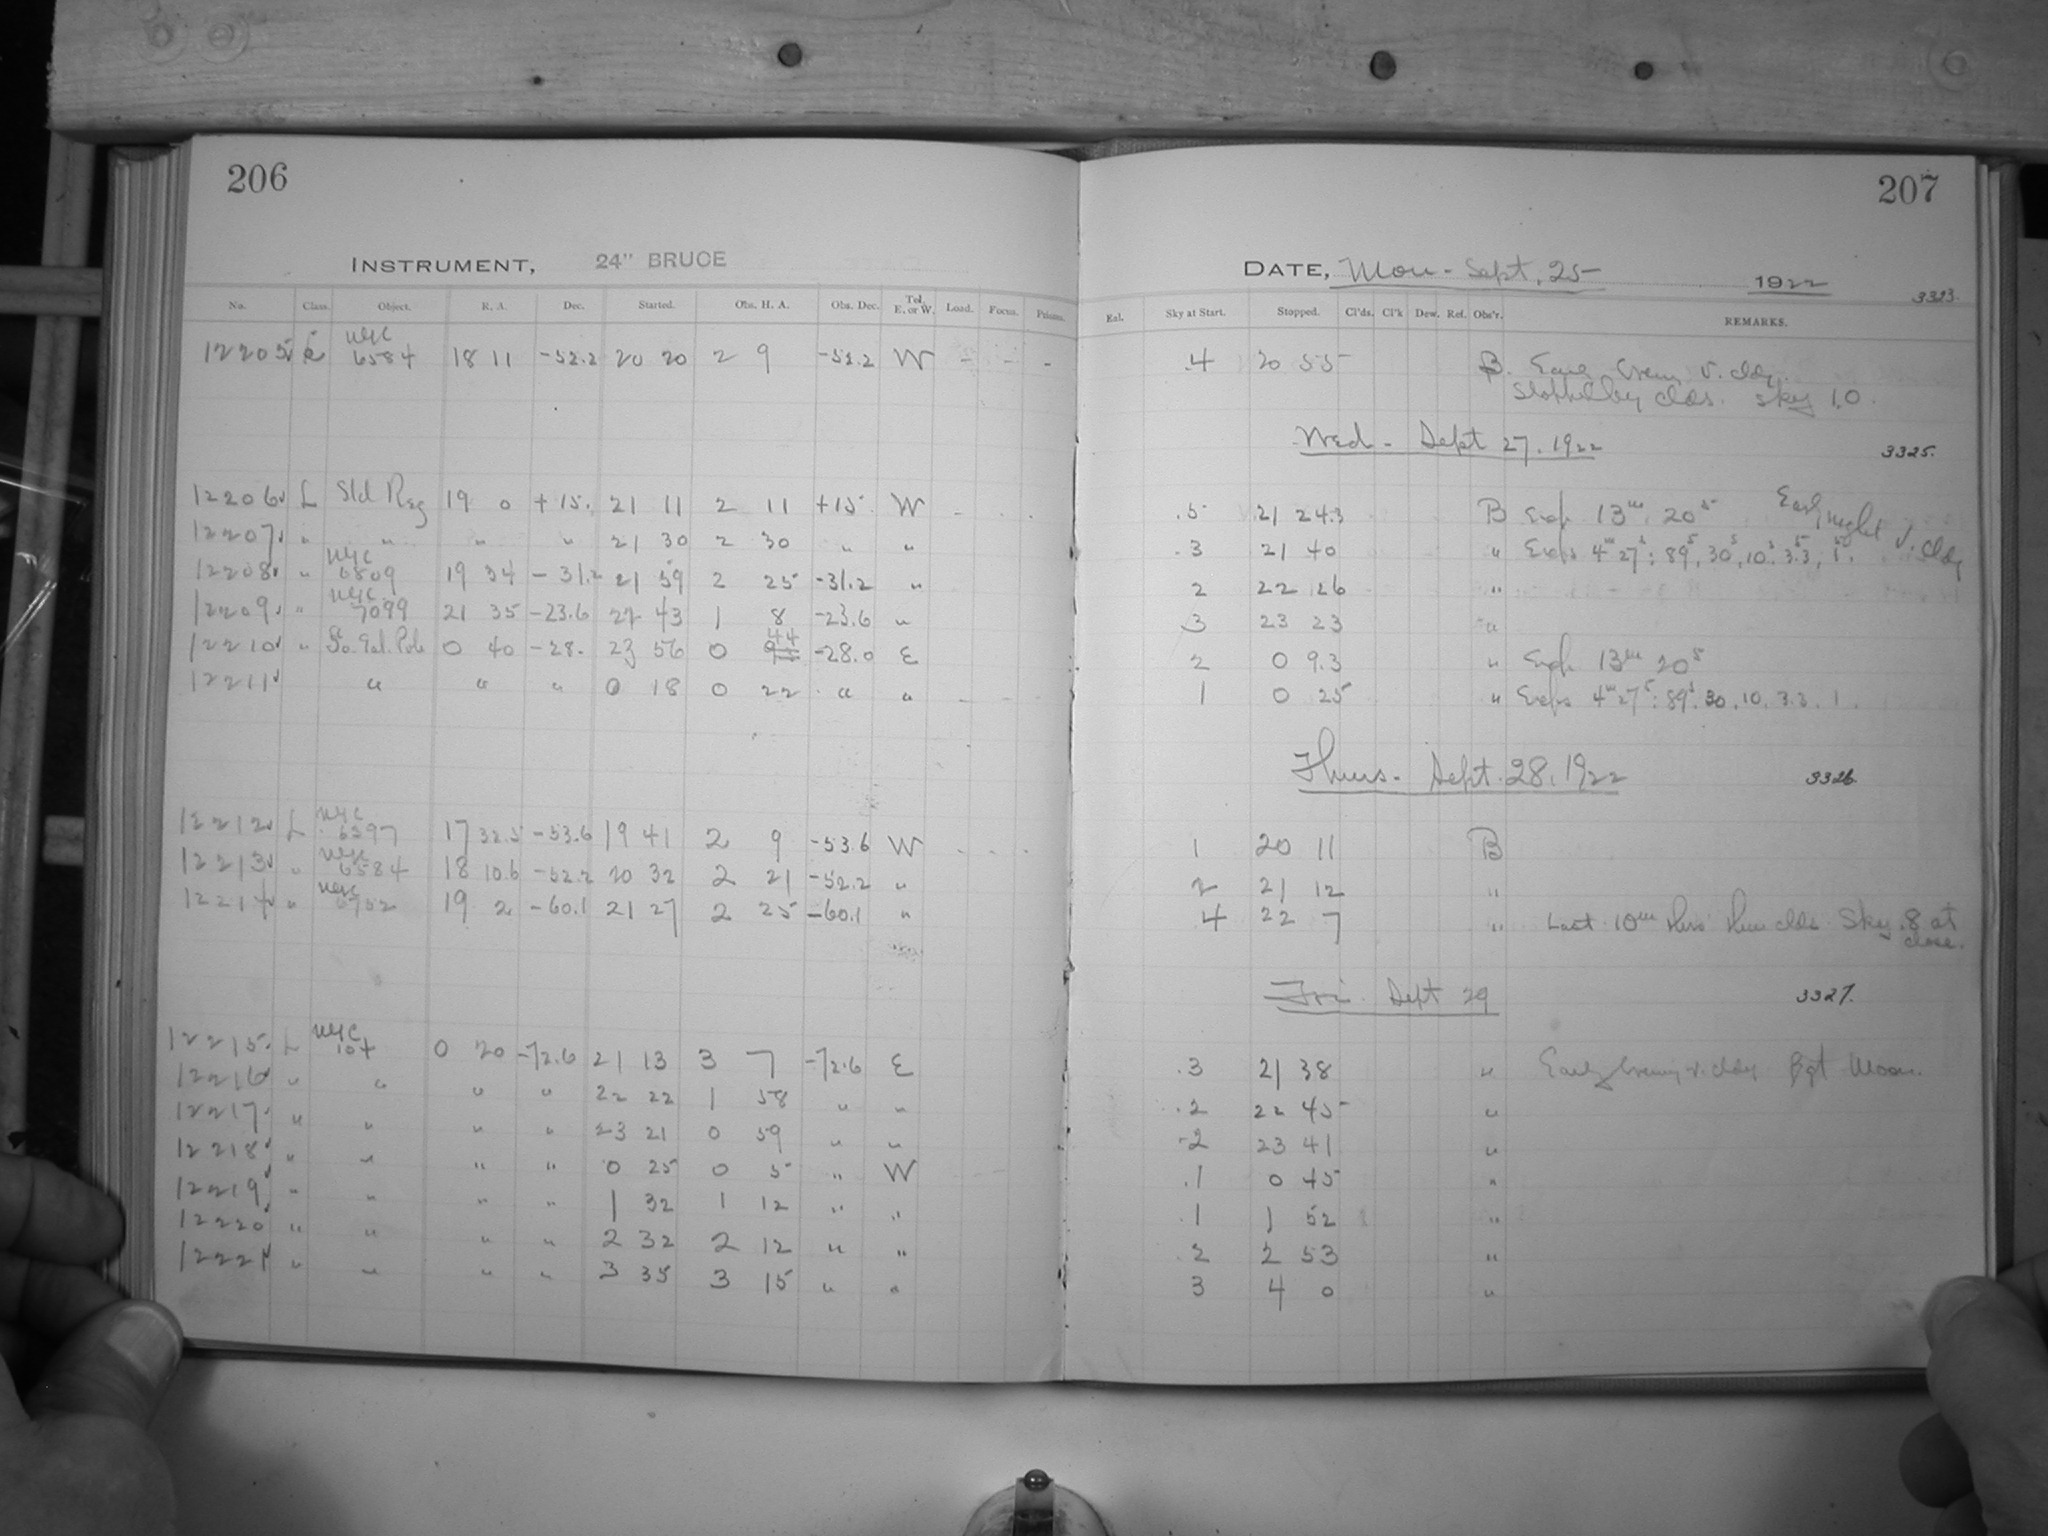 206
INSTRUMENT, 24" BRUCE
No. Class. Object. R. A. Dec. Started. Obs. H. A. Obs. Dec. Tel. E. or W. Load. Focus. Prisms.
12205 NGC 6584 18 11 -52.2 20 20 2 9 -52.2 W - - -
12206 L Std Reg 19 0 +15. 21 11 2 11 +15 W - . .
12207 " " " " 21 30 2 30 " "
12208 " NGC 6809 19 34 -31.2 21 59 2 25 -31.2 "
12209 " NGC 7099 21 35 -23.6 22 43 1 8 -23.6 "
12210 " So. Gal. Pole 0 40 -28. 23 56 0 44 -28.0 E
12211 " " " 0 18 0 22 " "
12212 L NGC 6397 17 32.5 -53.6 19 41 2 9 -53.6 W - - -
12213 " NGC 6584 18 10.6 -52.2 20 32 2 21 -52.2 "
12214 " NGC 6752 19 2 -60.1 21 27 2 25 -60.1 "
12215 L NGC 104 0 20 -72.6 21 13 3 7 -72.6 E
12216 " " " " 22 22 1 58 " "
12217 " " " " 23 21 0 59 " "
12218 " " " " 0 25 0 5 " W
12219 " " " " 1 32 1 12 " "
12220 " " " " 2 32 2 12 " "
12221 " " " " 3 35 3 15 " "
207
DATE, Mon - Sept. 25 1922
3323.
Eal. Sky at Start. Stopped. Cl'ds. Cl'k Dew. Ref. Obs'r. REMARKS.
.4 20 55 B. Early Evening v. cldy.
Stopped by clds. sky 1.0.
Wed - Sept 27, 1922 3325.
.5 21 24.3 B Exp. 13m 20s Early night v. cldy
.3 21 40 " Exps 4m 27s: 89s, 30s, 10s, 3.3s, 1s.
2 22 26 "
3 23 23 "
2 0 9.3 " Exp. 13m 20s
1 0 25 " Exps 4m 27s: 89s. 30. 10. 3.3. 1.
Thurs - Sept. 28, 1922 3326.
1 20 11 B
2 21 12 "
4 22 7 " Last 10m thro thin clds. Sky .8 at close.
Fri. Sept 29 3327.
.3 21 38 " Early Evening v. cldy Bgt Moon.
.2 22 45 "
.2 23 41 "
.1 0 45 "
.1 1 52 "
.2 2 53 "
3 4 0 "